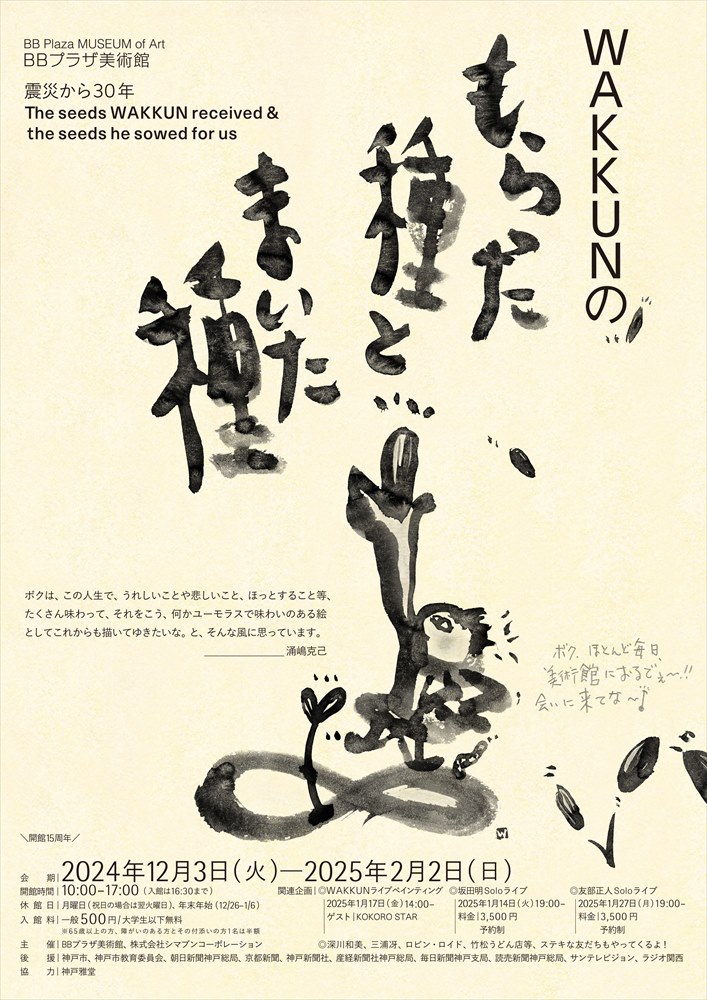 BB Plaza MUSEUM of Art
BBプラザ美術館
震災から30年
The seeds WAKKUN received &
the seeds he sowed for us
WAKKUNの
もらった
種と
まいた
種
ボクは、この人生で、うれしいことや悲しいこと、ほっとすること等、
たくさん味わって、それをこう、何かユーモラスで味わいのある絵
としてこれからも描いてゆきたいな。と、そんな風に思っています。
涌嶋克己
ボク、ほとんど毎日、
美術館におるでぇ〜!!
会いに来てな〜♪
W
\開館15周年/
会期|2024年12月3日(火)―2025年2月2日(日)
開館時間|10:00–17:00(入館は16:30まで)
休館日|月曜日(祝日の場合は翌火曜日)、年末年始(12/26–1/6)
入館料|一般500円/大学生以下無料
※65歳以上の方、障がいのある方とその付添いの方1名は半額
関連企画|◎WAKKUNライブペインティング
2025年1月17日(金)14:00–
ゲスト|KOKORO STAR
◎坂田明Soloライブ
2025年1月14日(火)19:00–
料金|3,500円
予約制
◎友部正人Soloライブ
2025年1月27日(月)19:00–
料金|3,500円
予約制
◎深川和美、三浦冴、ロビン・ロイド、竹松うどん店等、ステキな友だちもやってくるよ!
主催|BBプラザ美術館、株式会社シマブンコーポレーション
後援|神戸市、神戸市教育委員会、朝日新聞神戸総局、京都新聞、神戸新聞社、産経新聞社神戸総局、毎日新聞神戸支局、読売新聞神戸総局、サンテレビジョン、ラジオ関西
協力|神戸雅堂